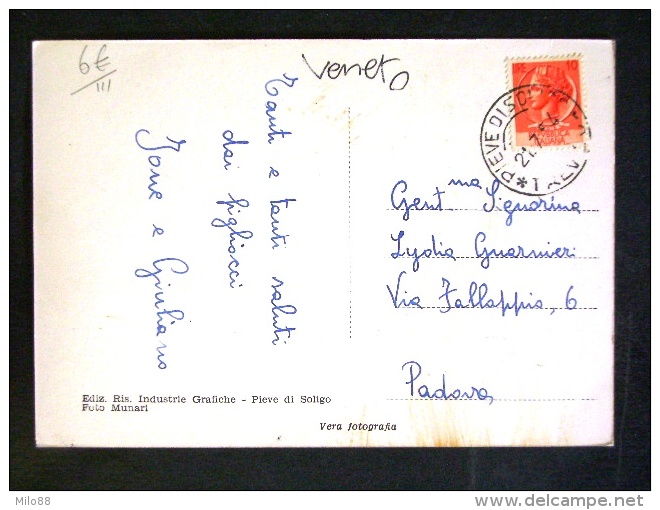 6€
III
veneto
10
PIEVE DI SOLIGO
21.7.54
* TREVISO
REPUBBLICA
ITALIANA
Tanti e tanti saluti
dai figliocci
Jone e Giuliano
Gent.ma Signorina
Lydia Guarnieri
Via Fallappio, 6
Padova
Ediz. Ris. Industrie Grafiche - Pieve di Soligo
Foto Munari
Vera fotografia
Milo88
delcampe.net